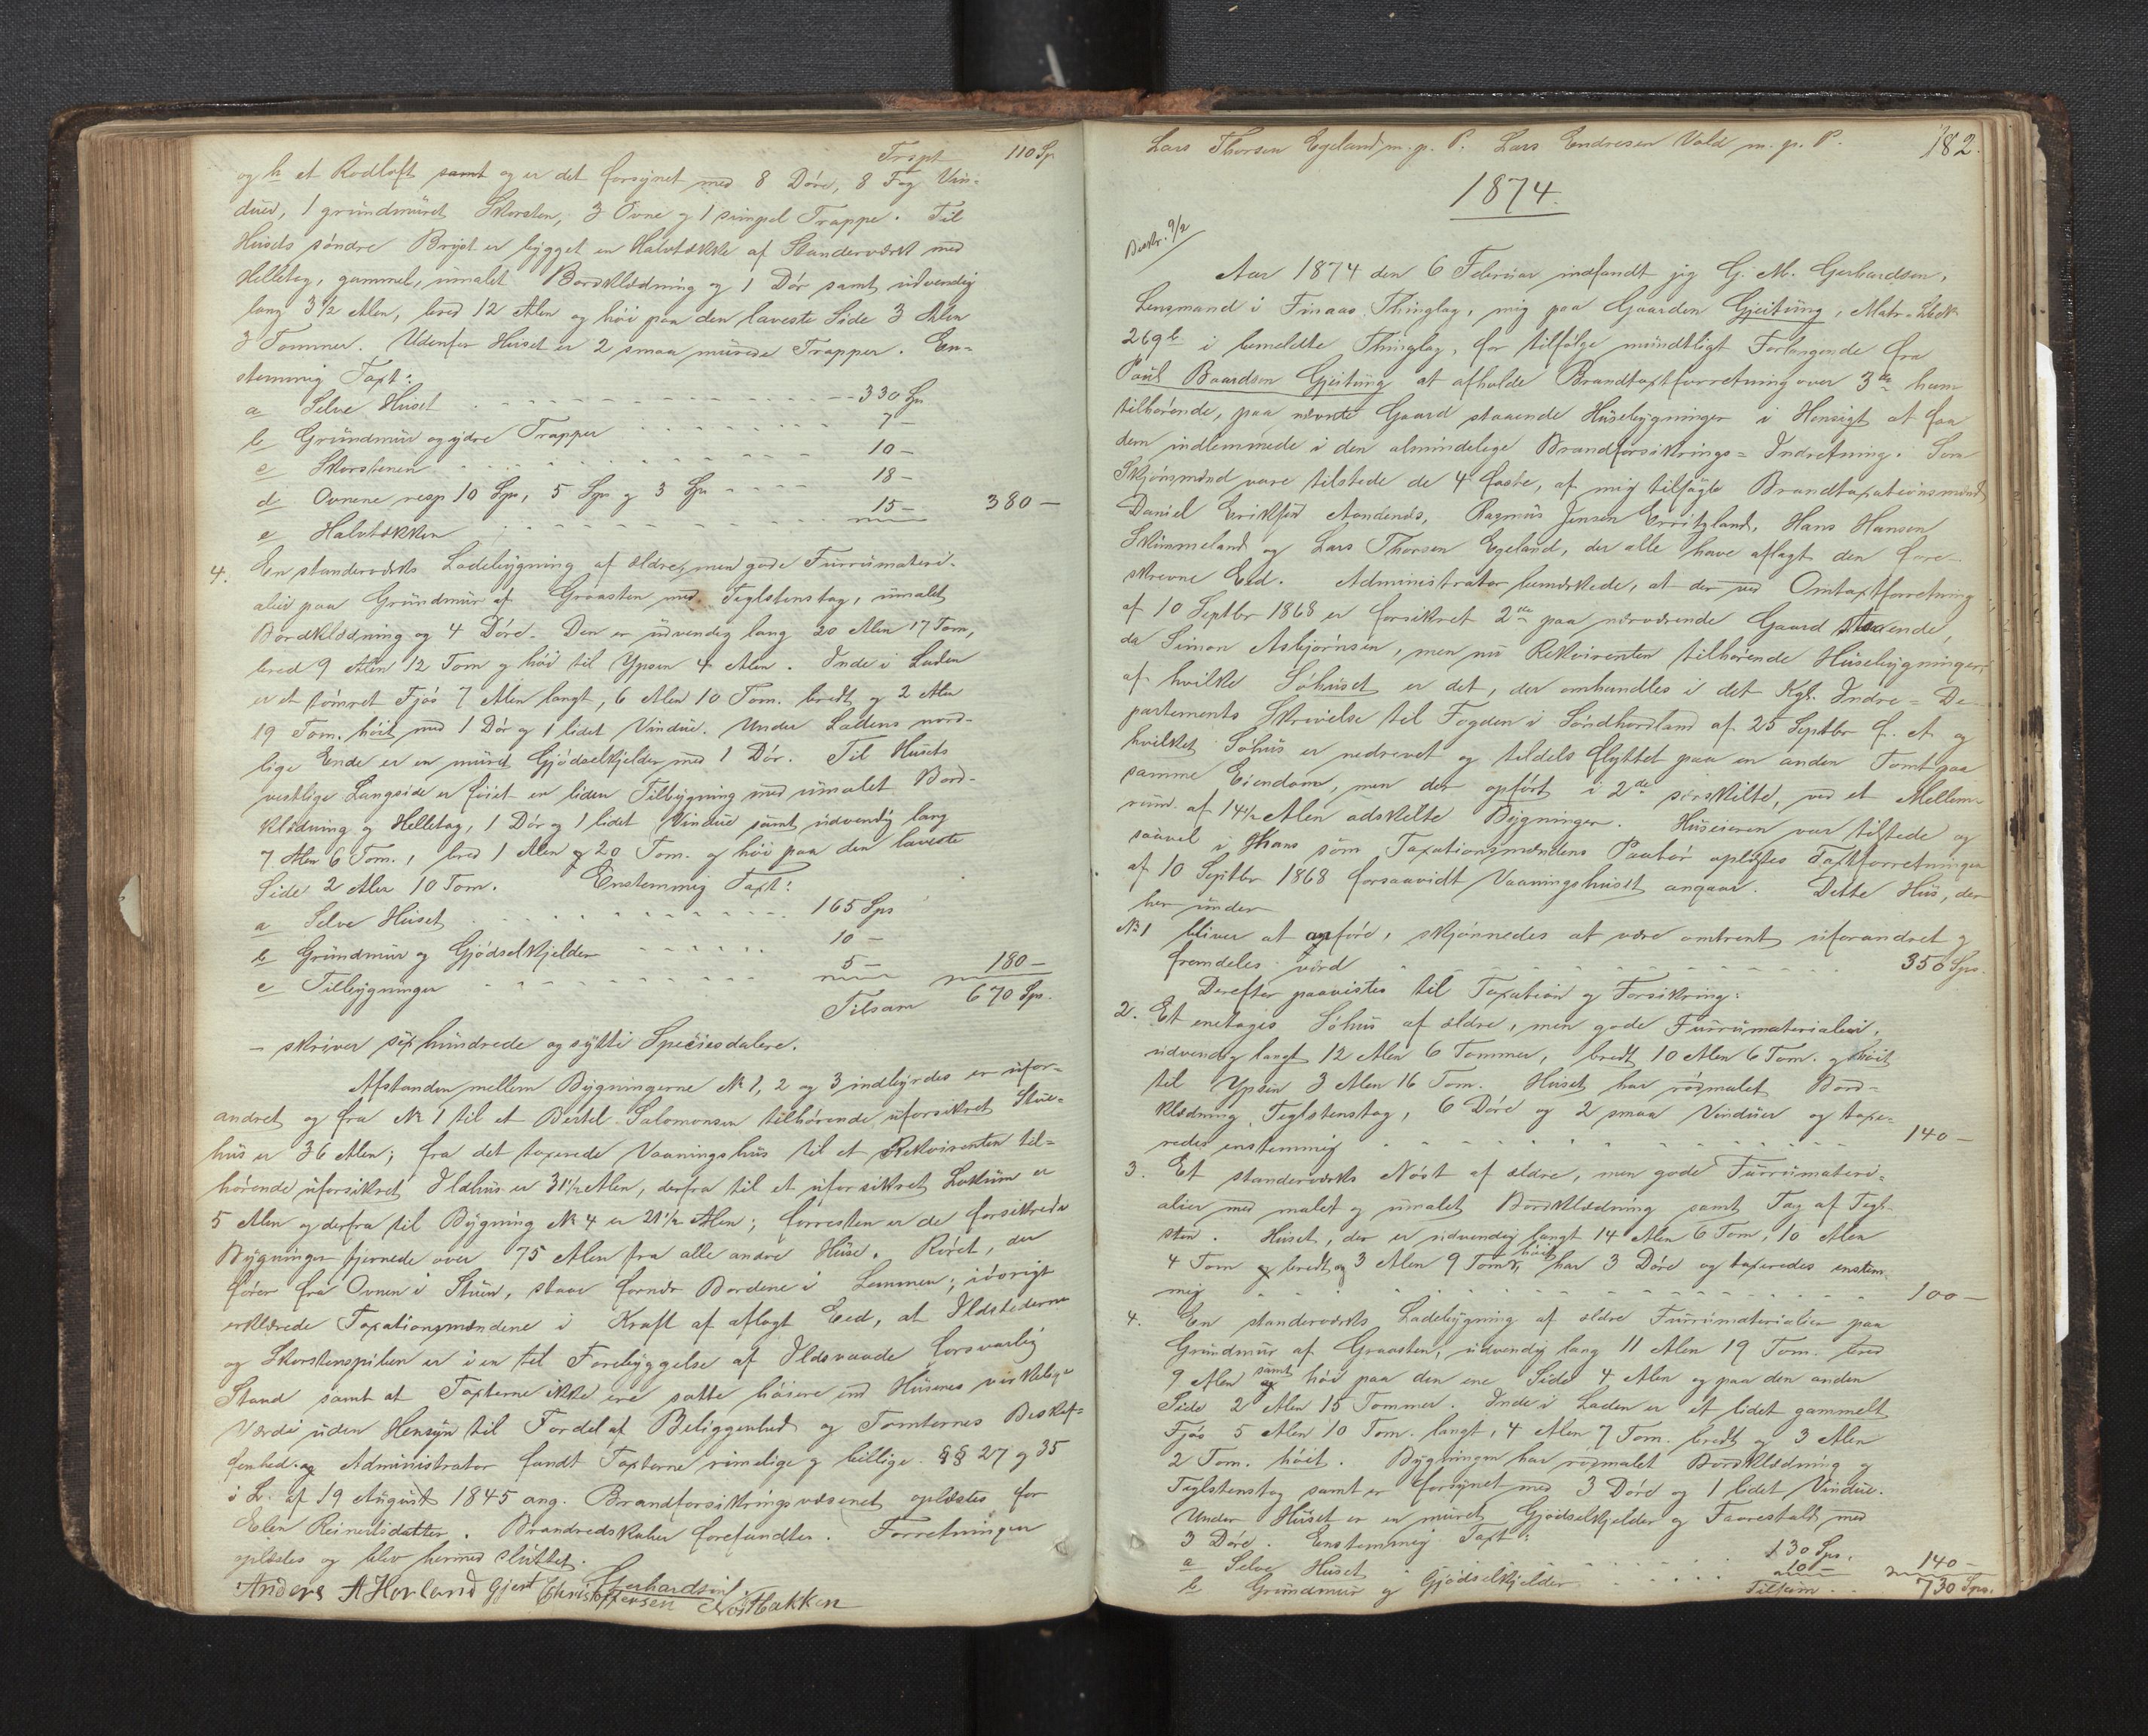 Trspt. 110 Sp
og h et Rodloft samt og er det forsynet med 8 Döre, 8 Fag Vin-
duer, 1 grundmüret Skorsten, 3 Ovne og 1 simpel Trappe. Til
Husets söndre Bryst er bygget en Halvtækkte af Standerværk med
Helletag, gammel, umalet Bordklædning og 1 Dör samt udvendig
lang 3 1/2 Alen, bred 12 Alen og höi paa den laveste Side 3 Alen
3 Tommer. Udenfor Huset er 2 smaa murede Trapper. En-
stemmig Taxt:
a Selve Huset 330 Sp
b Grundmür og ydre Trapper 7 —
c Skorstenen 10 —
d Ovnene resp 10 Sp, 5 Sp og 3 Sp 18 —
e Halvtækken 15 — 380 —
4. En standerværks Ladebygning af ældre, men gode Furrumateri-
alier paa Grundmür af Graasten med Teglstenstag, umalet
Bordklædning og 4 Döre. Den er udvendig lang 20 Alen 17 Tom,
bred 9 Alen 12 Tom og höi til Ypsen 4 Alen. Inde i Laden
er et tömret Fjös 7 Alen langt, 6 Alen 10 Tom. bredt og 2 Alen
19 Tom. höit med 1 Dör og 1 lidet Vindue. Under Ladens nord-
lige Ende er en müret Gjödselkjelder med 1 Dör. Til Husets
vestlige Langside er föiet en liden Tilbygning med umalet Bord-
klædning og Helletag, 1 Dör og 1 lidet Vindue samt udvendig lang
7 Alen 6 Tom., bred 1 Alen og 20 Tom. og höi paa den laveste
Side 2 Alen 10 Tom. Enstemmig Taxt:
a Selve Huset 165 Sps
b Grundmür og Gjödselkjelder 10 —
c Tilbygningen 5 — 180 —
Tilsam 670 Sps.
— skriver sex hundrede og sytti Speciesdalere.
Afstanden mellem Bygningerne № 1, 2 og 3 indbyrdes er ufor-
andret og fra № 1 til et Bertel Salomonsen tilhörende uforsikret Stue-
hus er 36 Alen; fra det taxerede Vaaningshus til et Rekvirenten til-
hörende uforsikret Ildhus er 31 1/2 Alen, derfra til et uforsikret Lokum er
5 Alen og derfra til Bygning № 4 er 21 1/2 Alen; forresten er de forsikrede
Bygninger fjernede over 75 Alen fra alle andre Huse. Röret, der
förer fra Ovnen i Stuen, staar fornær Bordene i Lemmen; iövrigt
erklærede Taxationsmændene i Kraft af aflagt Eed, at Ildstederne
og Skorstenspiben er i en til Forebyggelse af Ildsvaade forsvarlig
Stand samt at Taxterne ikke ere satte höiere end Husenes virkelige
Værdi uden Hensyn til Fordel af Beliggenhed og Tomternes Beskaf-
fenhed. og Administrator fandt Taxterne rimelige og billige. §§ 27 og 35
i L. af 19 August 1845 ang. Brandforsikringsvæsenet oplæstes for
Elen Reinertsdatter. Brandredskaber forefandtes. Forretningen
oplæstes og blev hermed sluttet.
Gerhardsen
Anders A Hovland Gjert Christoffersen Nöstbakken
Lars Thorsen Egeland m. p. P. Lars Endresen Vold m. p. P. 182.
1874.
Beskr. 9/2
Aar 1874 den 6 Februar indfandt jeg G. M. Gerhardsen,
Lensmand i Finaas Thinglag, mig paa Gaarden Gjeitung, Matr. Löbe №
269 b i bemeldte Thinglag, for tilfölge mündtligt Forlangende fra
Paul Baardsen Gjeitung at afholde Brandtaxtforretning over 3de ham
tilhörende, paa nævnte Gaard staaende Husebygninger i Hensigt at faa
dem indlemmede i den almindelige Brandforsikrings-Indretning. Som
Skjönsmænd vare tilstede de 4 faste, af mig tilsagte Brandtaxationsmænd
Daniel Eriksen Aandenæs, Rasmus Jensen Erritzland, Hans Hansen
Skimmeland og Lars Thorsen Egeland, der alle have aflagt den fore-
skrevne Eed. Administrator bemærkede, at der ved Omtaxtforretning
af 10 Septbr 1868 er forsikret 2de paa nærværende Gaard staaende,
da Simon Asbjörnsen, men nu Rekvirenten tilhörende Husebygninger,
af hvilke Söhuset er det, der omhandles i det Kgl. Indre-De-
partements Skrivelse til Fogden i Söndhordland af 25 Septbr f. A. og
hvilket Söhus er nedrevet og tildels flyttet paa en anden Tomt paa
samme Eiendom, men der opfört i 2de særskilte, ved et Mellem-
rum af 14 1/2 Alen adskilte Bygninger. Huseieren var tilstede og
saavel i Hans som Taxationsmændenes Paahör oplæstes Taxtforretningen
af 10 Septbr 1868 forsaavidt Vaaningshuset angaar. Dette Hus, der
her under
№ 1 bliver at anföre, skjönnedes at være omtrent uforandret og
fremdeles værd 350 Sps.
Derefter paavistes til Taxation og Forsikring:
2. Et enetages Söhus af ældre, men gode Furrumaterialier,
udvendig langt 12 Alen 6 Tommer, bredt 10 Alen 6 Tom. og höit
til Ypsen 3 Alen 16 Tom. Huset har rödmalet Bord-
klædning, Teglstenstag, 6 Döre og 2 smaa Vinduer og taxe-
redes enstemmig 140 —
3. Et standerværks Nöst af ældre, men gode Furrumateri-
alier med malet og umalet Bordklædning samt Tag af Tegl-
sten. Huset, der er udvendig langt 14 Alen 6 Tom, 10 Alen
4 Tom bredt og 3 Alen 9 Tomr. höit, har 3 Döre og taxeredes enstem-
mig 100 —
4. En standerværks Ladebygning af ældre Furrumaterialier paa
Grundmür af Graasten, udvendig lang 11 Alen 19 Tom. bred
9 Alen samt höi paa den ene Side 4 Alen og paa den anden
Side 2 Alen 15 Tommer. Inde i Laden er et lidet gammelt
Fjös 5 Alen 10 Tom. langt, 4 Alen 7 Tom. bredt og 3 Alen
2 Tom. höit. Bygningen har rödmalet Bordklædning og
Teglstenstag samt er forsynet med 3 Döre og 1 lidet Vindue.
Under Huset er en muret Gjödselkjelder og Faarestald med
3 Döre. Enstemmig Taxt:
a Selve Huset 130 Sps.
b Grundmur og Gjödselkjelder 10 — 140 —
Tilsam 730 Sps.